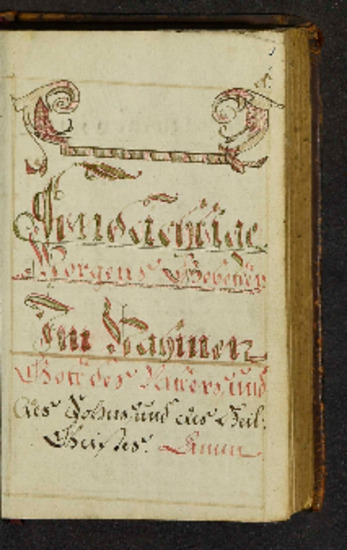 Andächtige
Morgens Gebether
Im Nahmen
Gott des Vatters und
des Sohns und des Heil:
Geistes. Amen.